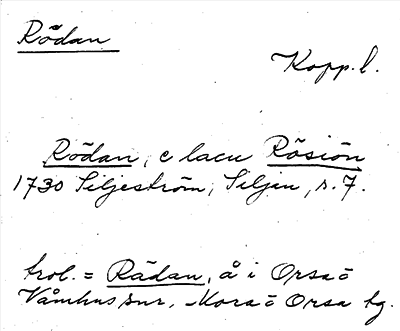 Rödan
Kopp. l.
Rödan, e lacu Rösiön
1730 Siljeström, Siljan, s. 7.
trol. = Rädan, å i Orsa o
Våmhus snr, Mora o Orsa tg.